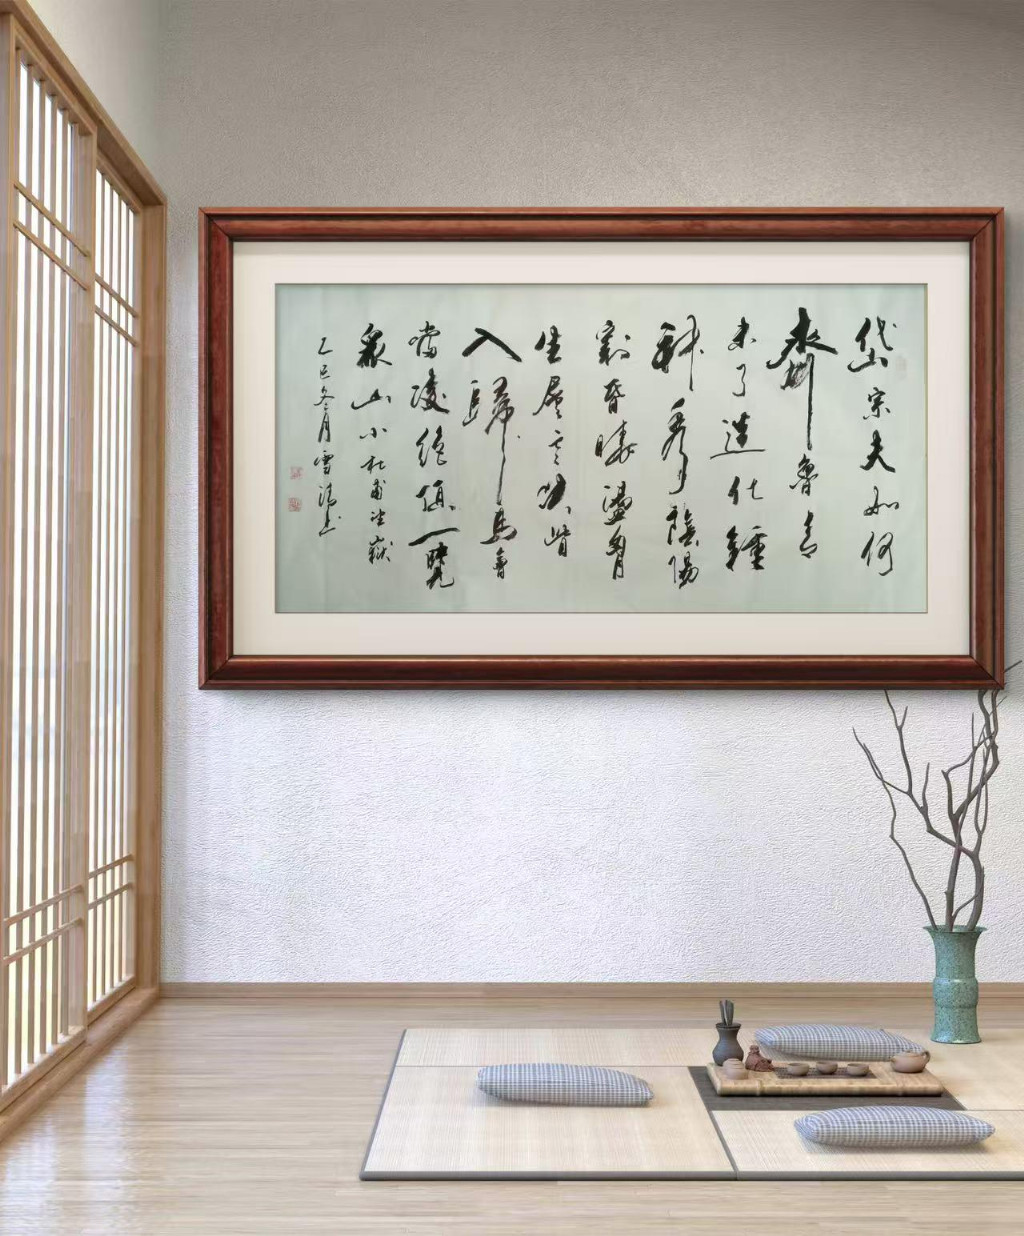 岱宗夫如何
齊魯青
未了造化鍾
神秀陰陽
割昏曉盪胷
生層雲決眥
入歸鳥會
當凌絕頂一覽
眾山小杜甫望嶽
乙巳冬月雪濤書